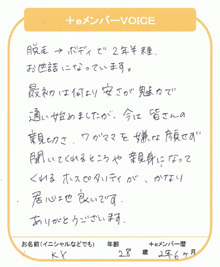 +eメンバーVOICE
脱毛→ボディで2年半程
お世話になっています。
最初は何より安さが魅力で
通い始めましたが、今は皆さんの
親切さ、ワガママを嫌な顔せず
聞いてくれるところや親身になって
くれるホスピタリティが、かなり
居心地良いです。
ありがとうございます。
お名前(イニシャルなどでも) 年齢 +eメンバー暦
KY 28歳 2年6ヶ月